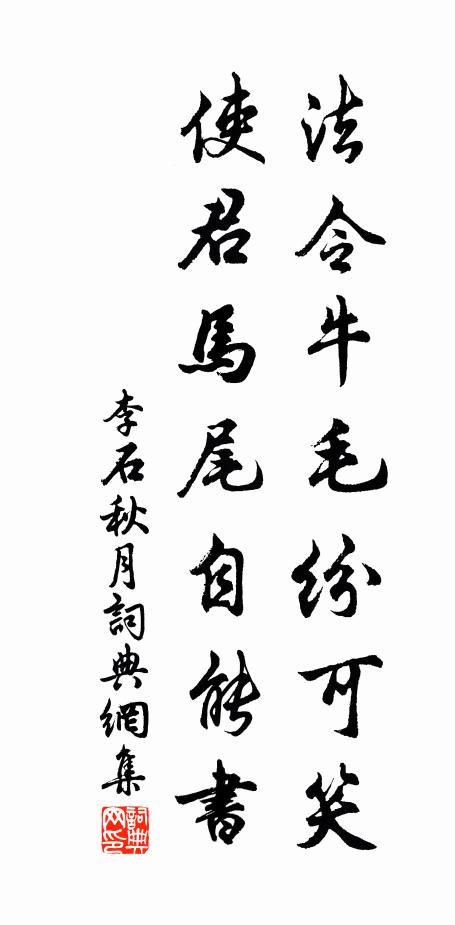 法令牛毛紛可笑
使君馬尾自能書
李石秋月詞典網集
詞典
网印